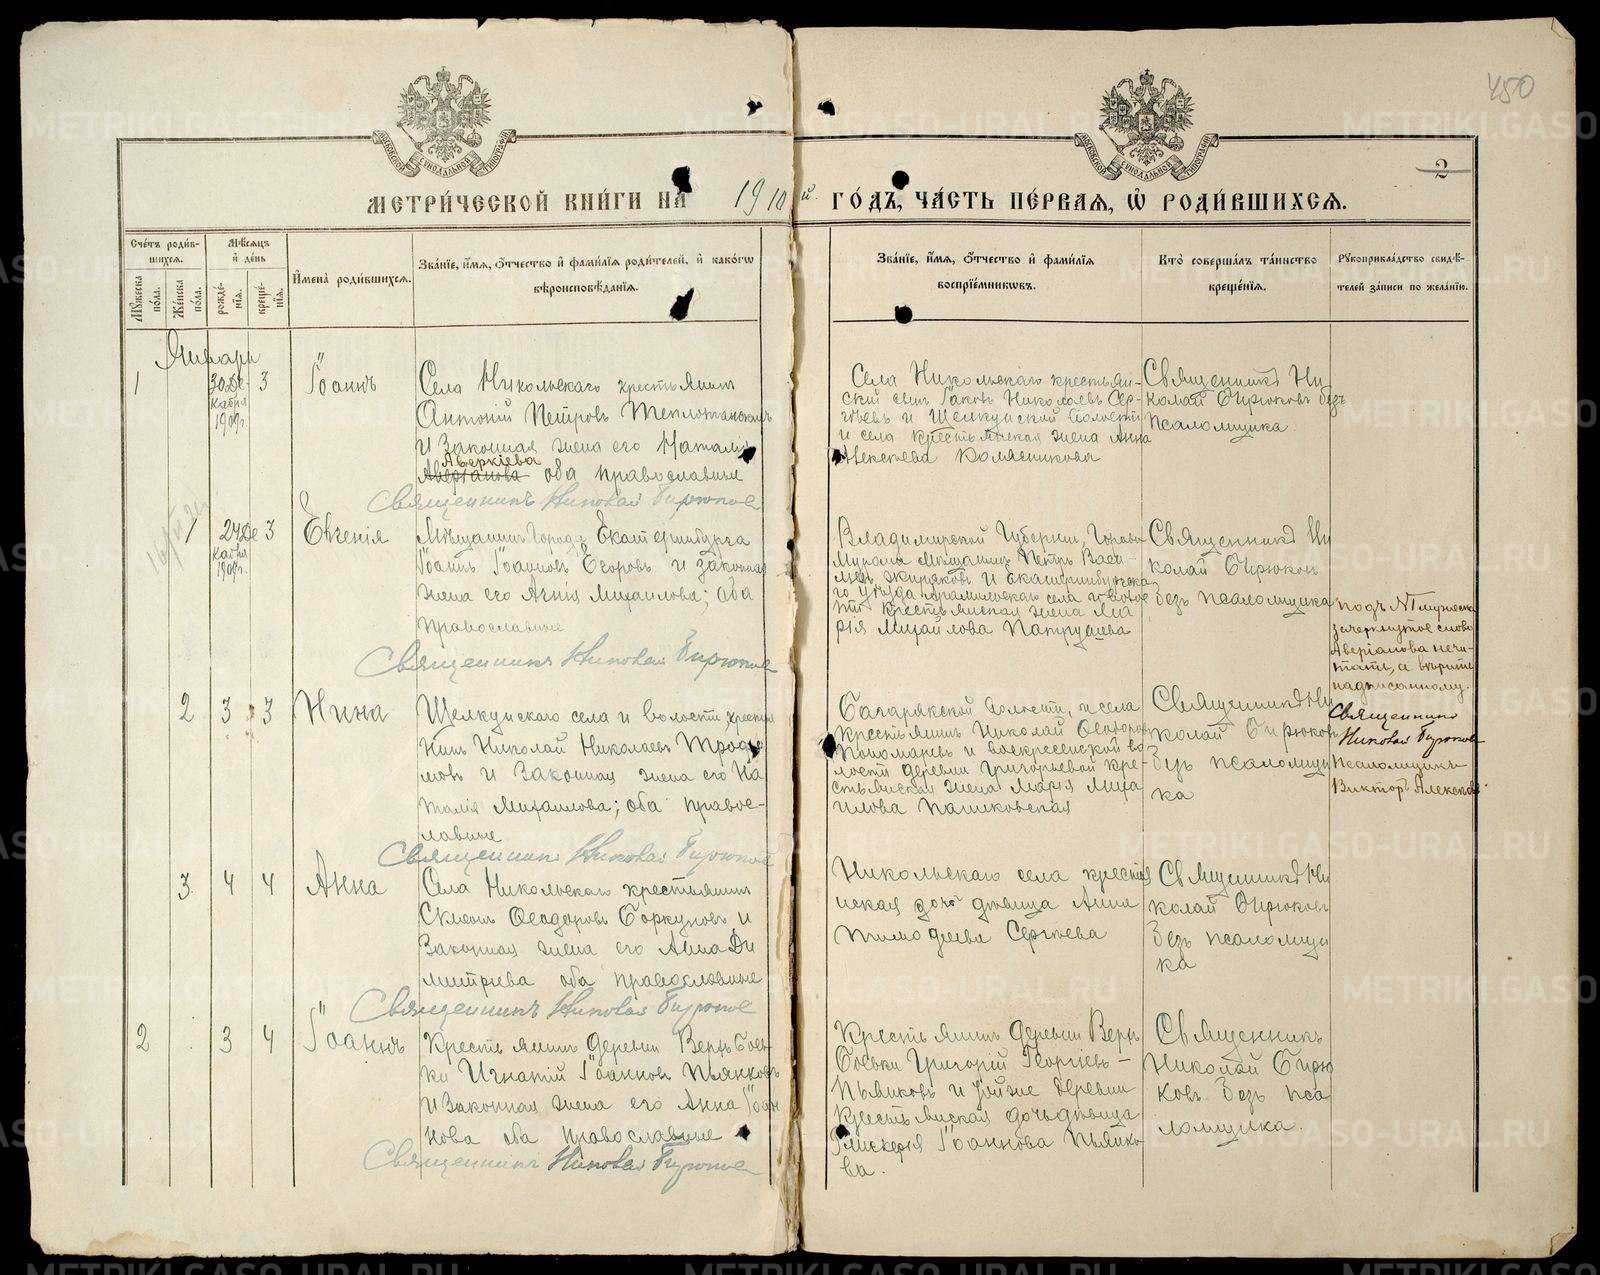 450
2
МЕТРИ́ЧЕСКОЙ КНИ́ГИ НА 1910й ГО́ДЪ, ЧА́СТЬ ПЕ́РВАЯ, Ѽ РОДИ́ВШИХСЯ.
Сче́тъ роди́вшихся.
Му́жеска по́ла.
Же́нска по́ла.
Мѣ́сяцъ и҆ де́нь
рожде́нїя.
креще́нїя.
И҆мена̀ роди́вшихся.
Зва́нїе, и҆́мя, ѻ҆́тчество и҆ фами́лїя роди́телей, и҆ како́гѡ
вѣроисповѣ́данїя.
Зва́нїе, и҆́мя, ѻ҆́тчество и҆ фами́лїя
воспрїе́мникѡвъ.
Кто̀ соверша́лъ та́инство
креще́нїя.
Рꙋкоприкла́дство свидѣ́-
телей за́писи по жела́нїю.
Январь
1
30 Де-
кабря
1909г.
3
Іоаннъ
Села Никольскаго крестьянинъ
Антоній Петровъ
и законная жена его Наталія
Аверкіева
Аверіанова оба православные
Священникъ Николай Бирюков
Села Никольскаго крестьян-
скій сынъ Іаковъ Николаевъ Сер-
гѣевъ и Щелкунской волости
и села крестьянская жена Анна
Алексѣева
Священникъ Ни
колай Бирюковъ безъ
псаломщика
1
24 Де
кабря
1909г.
3
Евгенія
Мѣщанинъ города Екатеринбурга
Іоаннъ Іоанновъ Егоровъ и законная
жена его Агнія Михаилова; оба
православные
Священникъ Николай Бирюков
Владимирской Губерніи, города
Мурома мѣщанинъ Петръ Васи-
льевъ и Екатеринбургска
го уѣзда Арамильскаго села и волос
ти крестьянская жена Ма
рія Михайлова Патрушева
Священникъ Ни
колай Бирюковъ
безъ псаломщика
подъ №1 мужеска
зачеркнутое слово
Аверіанова нечи-
тать, а вѣрить
надписанному.
Священникъ
Николай Бирюков
Псаломщикъ
Викторъ
2
3
3
Нина
Щелкунскаго села и волости крестья
нинъ Николай Николаевъ Трофи
мовъ и законная жена его На
талія Михаилова; оба правос-
лавные
Священникъ Николай Бирюков
Багарякской волости, и села
крестьянинъ Николай Ѳеодоровъ
Пономаревъ и воскресенской во
лости деревни Григорьевой кре-
стьянская жена Марія Миха
илова Пашковская
Священникъ Ни
колай Бирюковъ
безъ псаломщи
ка
3.
4
4
Анна
Села Никольскаго крестьянинъ
Ѳеодоровъ Боркуновъ и
законная жена его Анна Ди
митріева оба православные
Священникъ Николай Бирюков
Никольскаго села крестья
нская дочь дѣвица Анна
Тимоѳеева Сергѣева
Священникъ Ни
колай Бирюковъ
безъ псаломщи
ка
2
3
4
Іоаннъ
Крестьянинъ деревни Верхъ Боев-
ки Игнатій Іоанновъ Пьянковъ
и законная жена его Анна Іоан
нова оба православные
Священникъ Николай Бирюков
Крестьянинъ деревни Верхъ
Боевки Григорій Георгіевъ-
Пьянковъ и тойже деревни
крестьянская дочь дѣвица
Гликерія Іоаннова Пьянко
ва.
Священникъ
Николай Бирю
ковъ безъ пса
ломщика.
METRIKI.GASO-URAL.RU